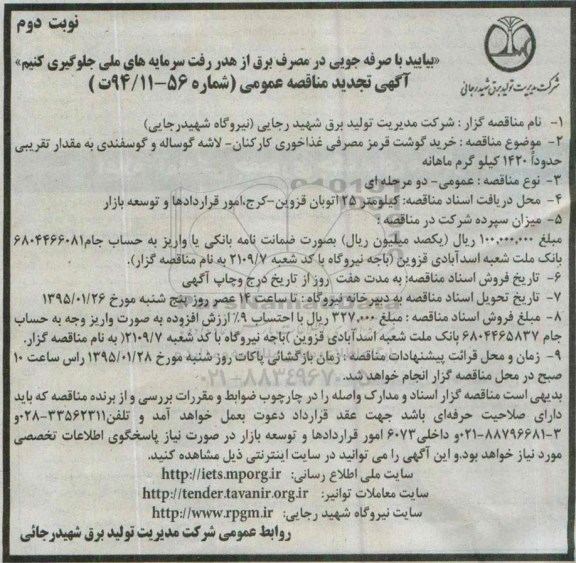 نوبت دوم
شرکت مدیریت تولید برق شهید رجائی
«بیایید با صرفه جویی در مصرف برق از هدر رفت سرمایه های ملی جلوگیری کنیم»
آگهی تجدید مناقصه عمومی (شماره ۵۶-۹۴/۱۱ت)
۱- نام مناقصه گزار : شرکت مدیریت تولید برق شهید رجایی (نیروگاه شهیدرجایی)
۲- موضوع مناقصه : خرید گوشت قرمز مصرفی غذاخوری کارکنان- لاشه گوساله و گوسفندی به مقدار تقریبی
حدوداً ۱۴۲۰ کیلو گرم ماهانه
۳- نوع مناقصه : عمومی- دو مرحله ای
۴- محل دریافت اسناد مناقصه: کیلومتر ۲۵ اتوبان قزوین-کرج،امور قراردادها و توسعه بازار
۵- میزان سپرده شرکت در مناقصه :
مبلغ ۱۰۰,۰۰۰,۰۰۰ ریال (یکصد میلیون ریال) بصورت ضمانت نامه بانکی یا واریز به حساب جام۶۸۰۴۴۶۶۰۸۱
بانک ملت شعبه اسدآبادی قزوین (باجه نیروگاه با کد شعبه ۲۱۰۹/۷ به نام مناقصه گزار).
۶- تاریخ فروش اسناد مناقصه: به مدت هفت روز از تاریخ درج وچاپ آگهی
۷- تاریخ تحویل اسناد مناقصه به دبیرخانه نیروگاه: تا ساعت ۱۴ عصر روز پنج شنبه مورخ ۱۳۹۵/۰۱/۲۶
۸- مبلغ فروش اسناد مناقصه : مبلغ ۳۲۷,۰۰۰ ریال با احتساب ۹٪ ارزش افزوده به صورت واریز وجه به حساب
جام ۶۸۰۴۴۶۵۸۳۷ بانک ملت شعبه اسدآبادی قزوین )باجه نیروگاه با کد شعبه ۲۱۰۹/۷( به نام مناقصه گزار.
۹- زمان و محل قرائت پیشنهادات مناقصه : زمان بازگشائی پاکات روز شنبه مورخ ۱۳۹۵/۰۱/۲۸ راس ساعت ۱۰
صبح در محل مناقصه گزار انجام خواهد شد.
بدیهی است مناقصه گزار اسناد و مدارک واصله را در چارچوب ضوابط و مقررات بررسی و از برنده مناقصه که باید
دارای صلاحیت حرفه‌ای باشد جهت عقد قرارداد دعوت بعمل خواهد آمد و تلفن۳۳۵۶۲۳۱۱-۰۲۸و
۳-۸۸۷۹۶۶۸۱-۰۲۱و داخلی۶۰۷۳ امور قراردادها و توسعه بازار در صورت نیاز پاسخگوی اطلاعات تخصصی
مورد نیاز خواهد بود.و این آگهی را می توانید در سایت اینترنتی ذیل مشاهده کنید.
سایت ملی اطلاع رسانی: http://iets.mporg.ir
سایت معاملات توانیر: http://tender.tavanir.org.ir
سایت نیروگاه شهید رجایی: http://www.rpgm.ir
روابط عمومی شرکت مدیریت تولید برق شهیدرجائی